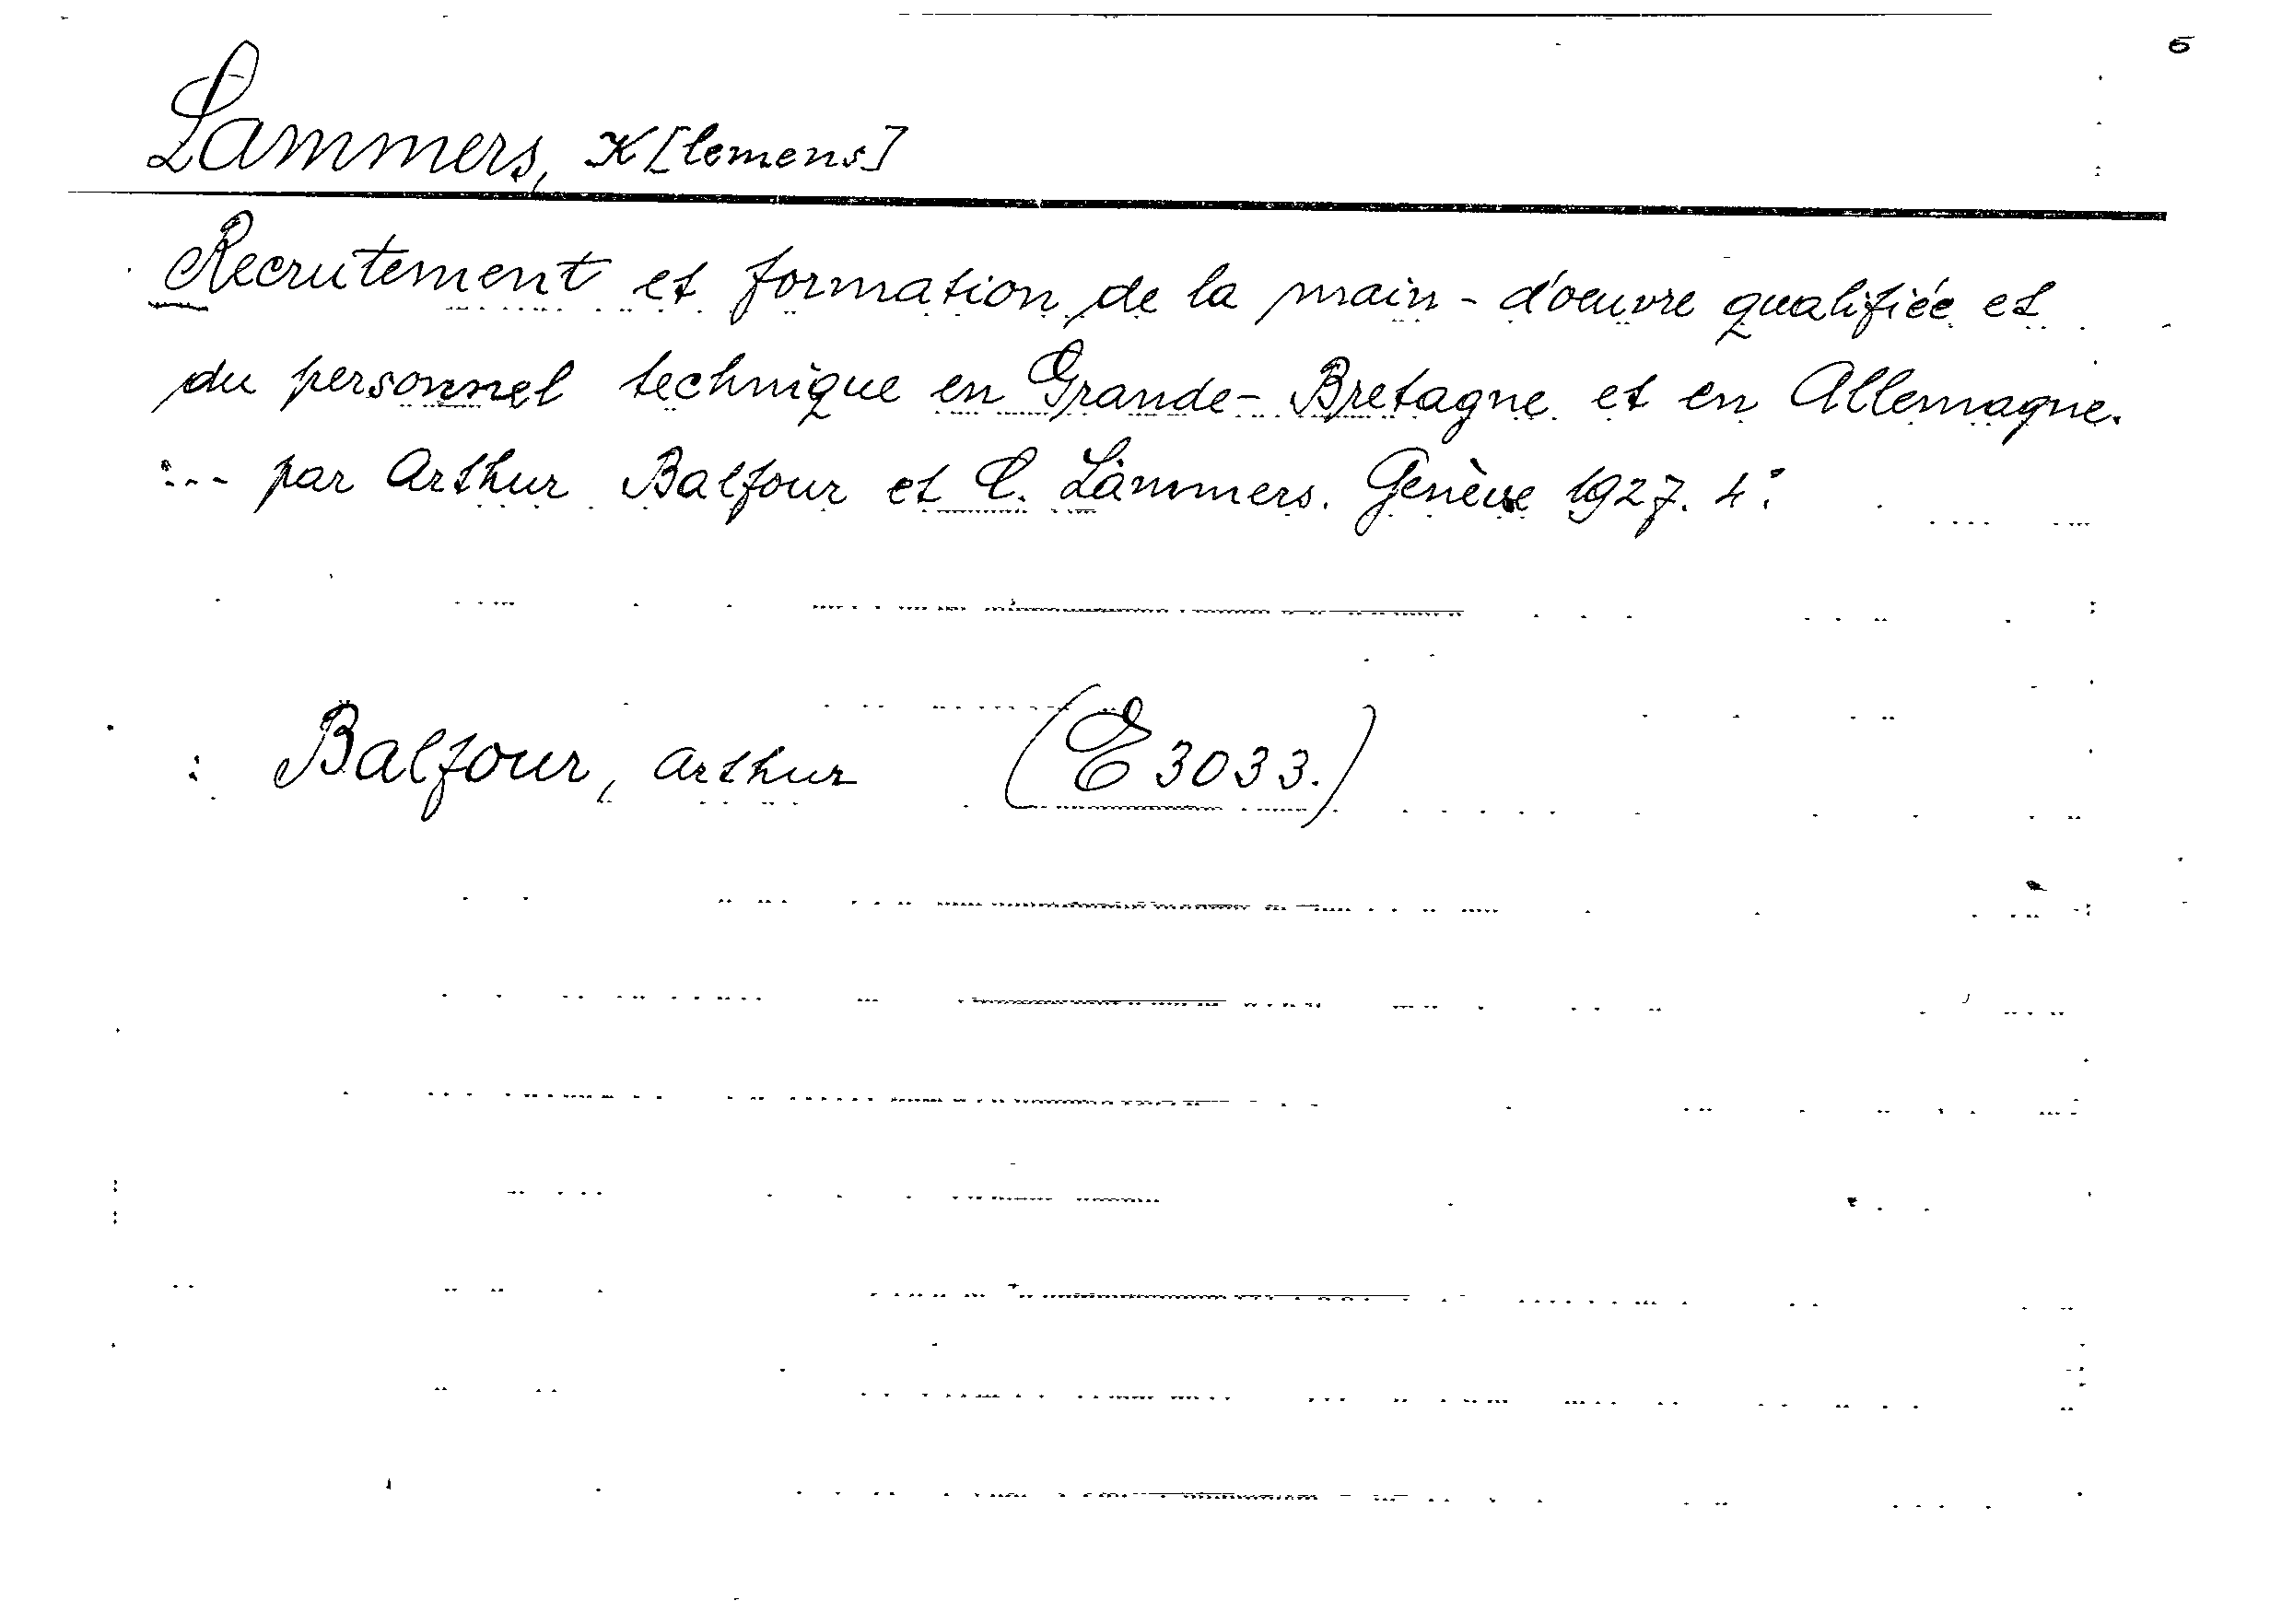 5
Lammers, K[lemens]
Recrutement et formation de la main-d'oeuvre qualifiée et
du personnel technique en Grande-Bretagne et en Allemagne.
:-- par Arthur Balfour et C. Lammers. Genève 1927. 4°.
: Balfour, Arthur (E 3033.)